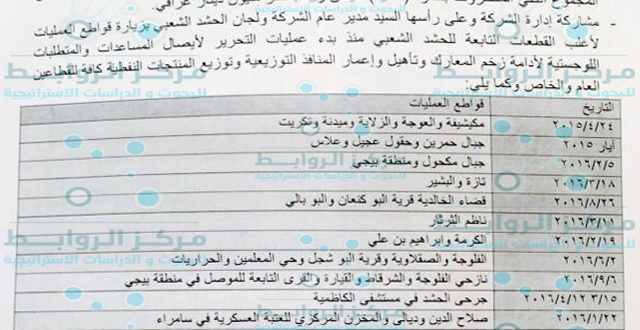 - مشاركة إدارة الشركة وعلى رأسها السيد مدير عام الشركة ولجان الحشد الشعبي بزيارة قواطع العمليات
لأغلب القطعات التابعة للحشد الشعبي منذ بدء عمليات التحرير لأيصال المساعدات والمتطلبات
اللوجستية لأدامة زخم المعارك وتأهيل وإعمار المنافذ التوزيعية وتوزيع المنتجات النفطية كافة للقطاعين
العام والخاص وكما يلي:
التاريخ قواطع العمليات
٢٠١٥/٤/٢٤ مكيشيفة والعوجة والزلاية ومبدنة وتكريت
أيار ٢٠١٥ جبال حمرين وحقول عجيل وعلاس
٢٠١٦/٢/٥ جبال مكحول ومنطقة بيجي
٢٠١٦/٣/١٨ تازة والبشير
٢٠١٦/٨/٢٦ قضاء الخالدية قرية البو كنعان والبو بالي
٢٠١٦/٣/١١ ناظم الثرثار
٢٠١٦/٢/١٩ الكرمة وابراهيم بن علي
٢٠١٦/٦/٢ الفلوجة والصقلاوية وقرية البو شجل وحي المعلمين والحراريات
٢٠١٦/٩/٦ نازحي الفلوجة والشرقاط والقيارة والقرى التابعة للموصل في منطقة بيجي
٣/١٥ ٢٠١٦/٤/١٢ جرحى الحشد في مستشفى الكاظمية
٢٠١٦/١/٢٢ صلاح الدين وديالى والمخزن المركزي للعتبة العسكرية في سامراء
مركز الروابط
للبحوث و الدراسات الاستراتيجية